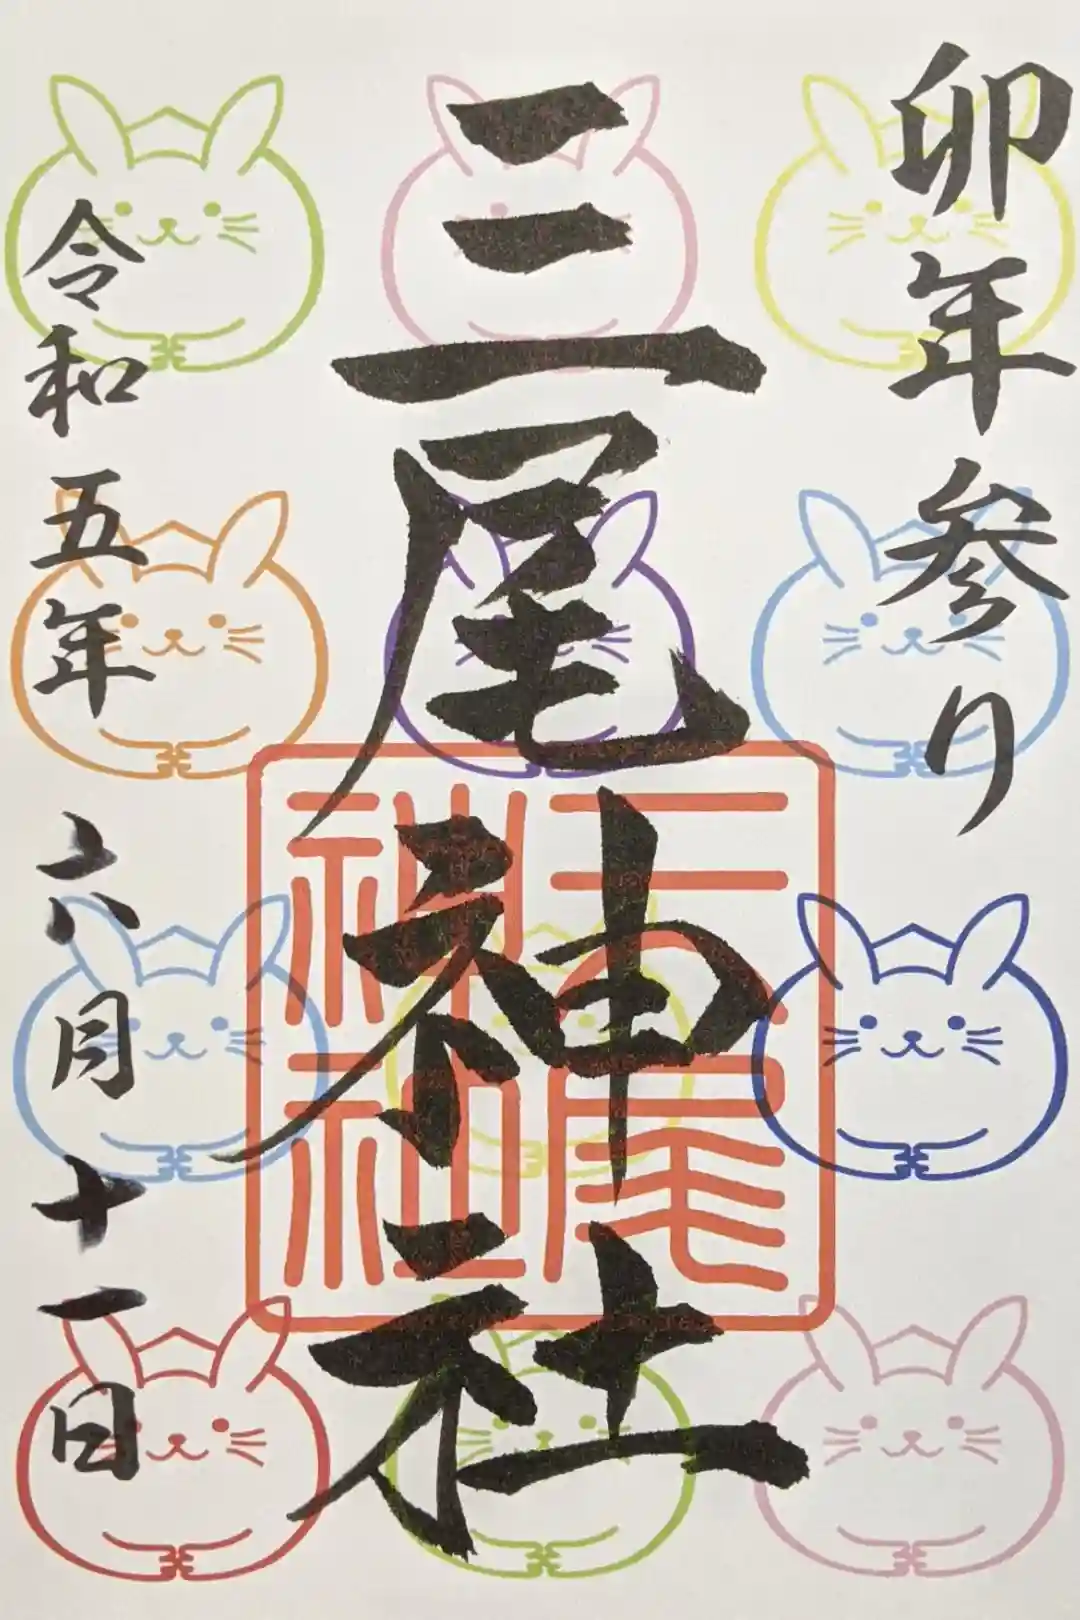 卯年参り
三尾神社
三尾神社
令和五年
六月十一日